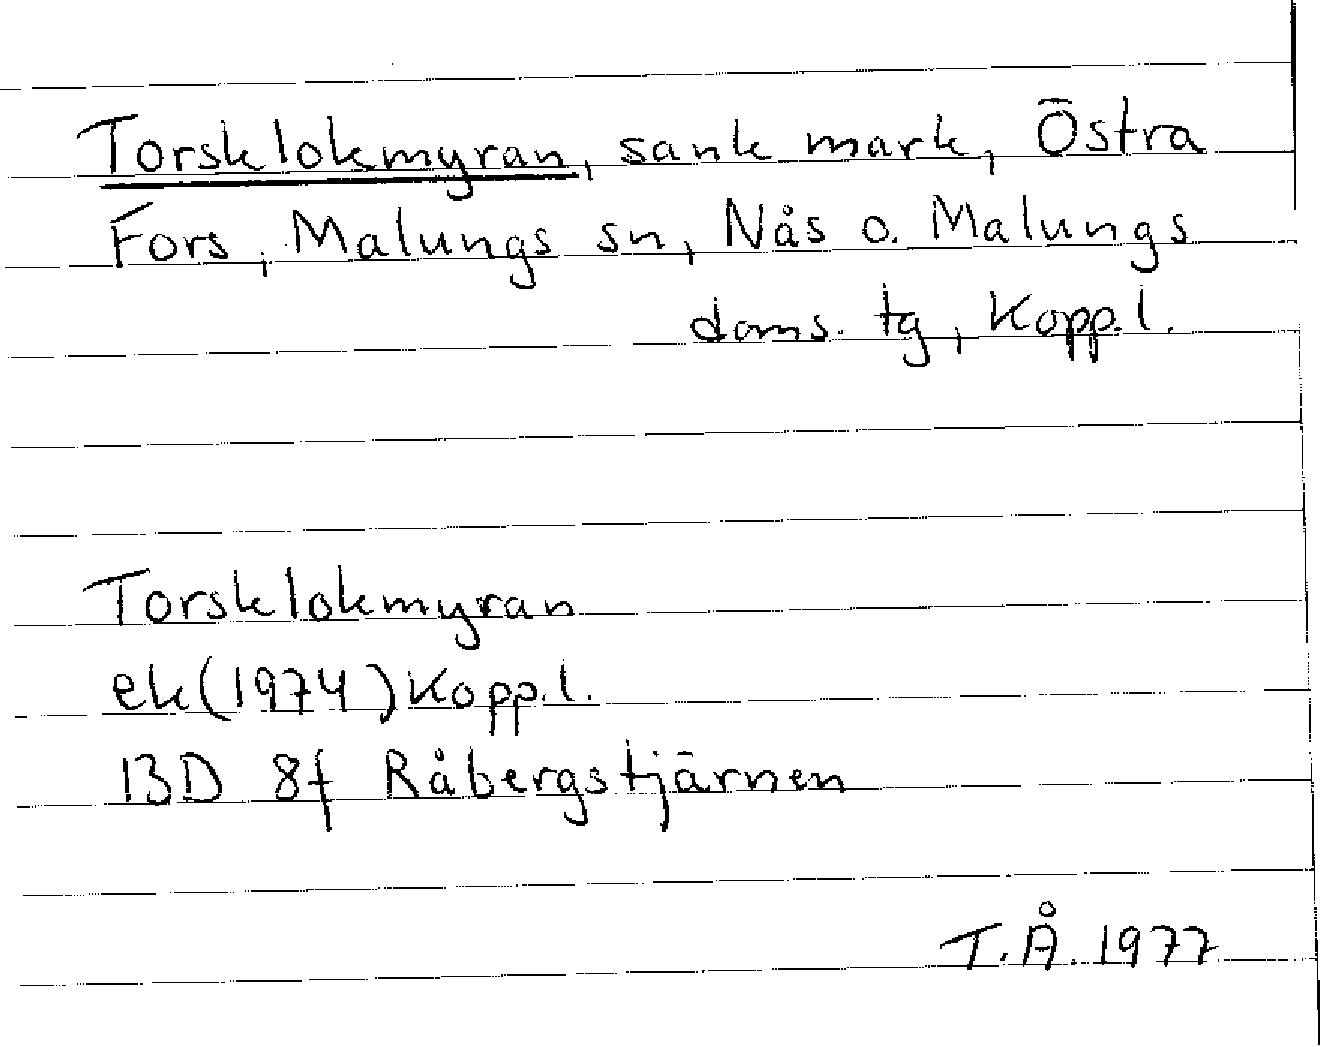 Torsklokmyran, sank mark, Östra
Fors, Malungs sn, Nås o. Malungs
doms. tg, Kopp. l.
Torsklokmyran
ek (1974) Kopp. l.
13D 8f Råbergstjärnen
T.Å. 1977